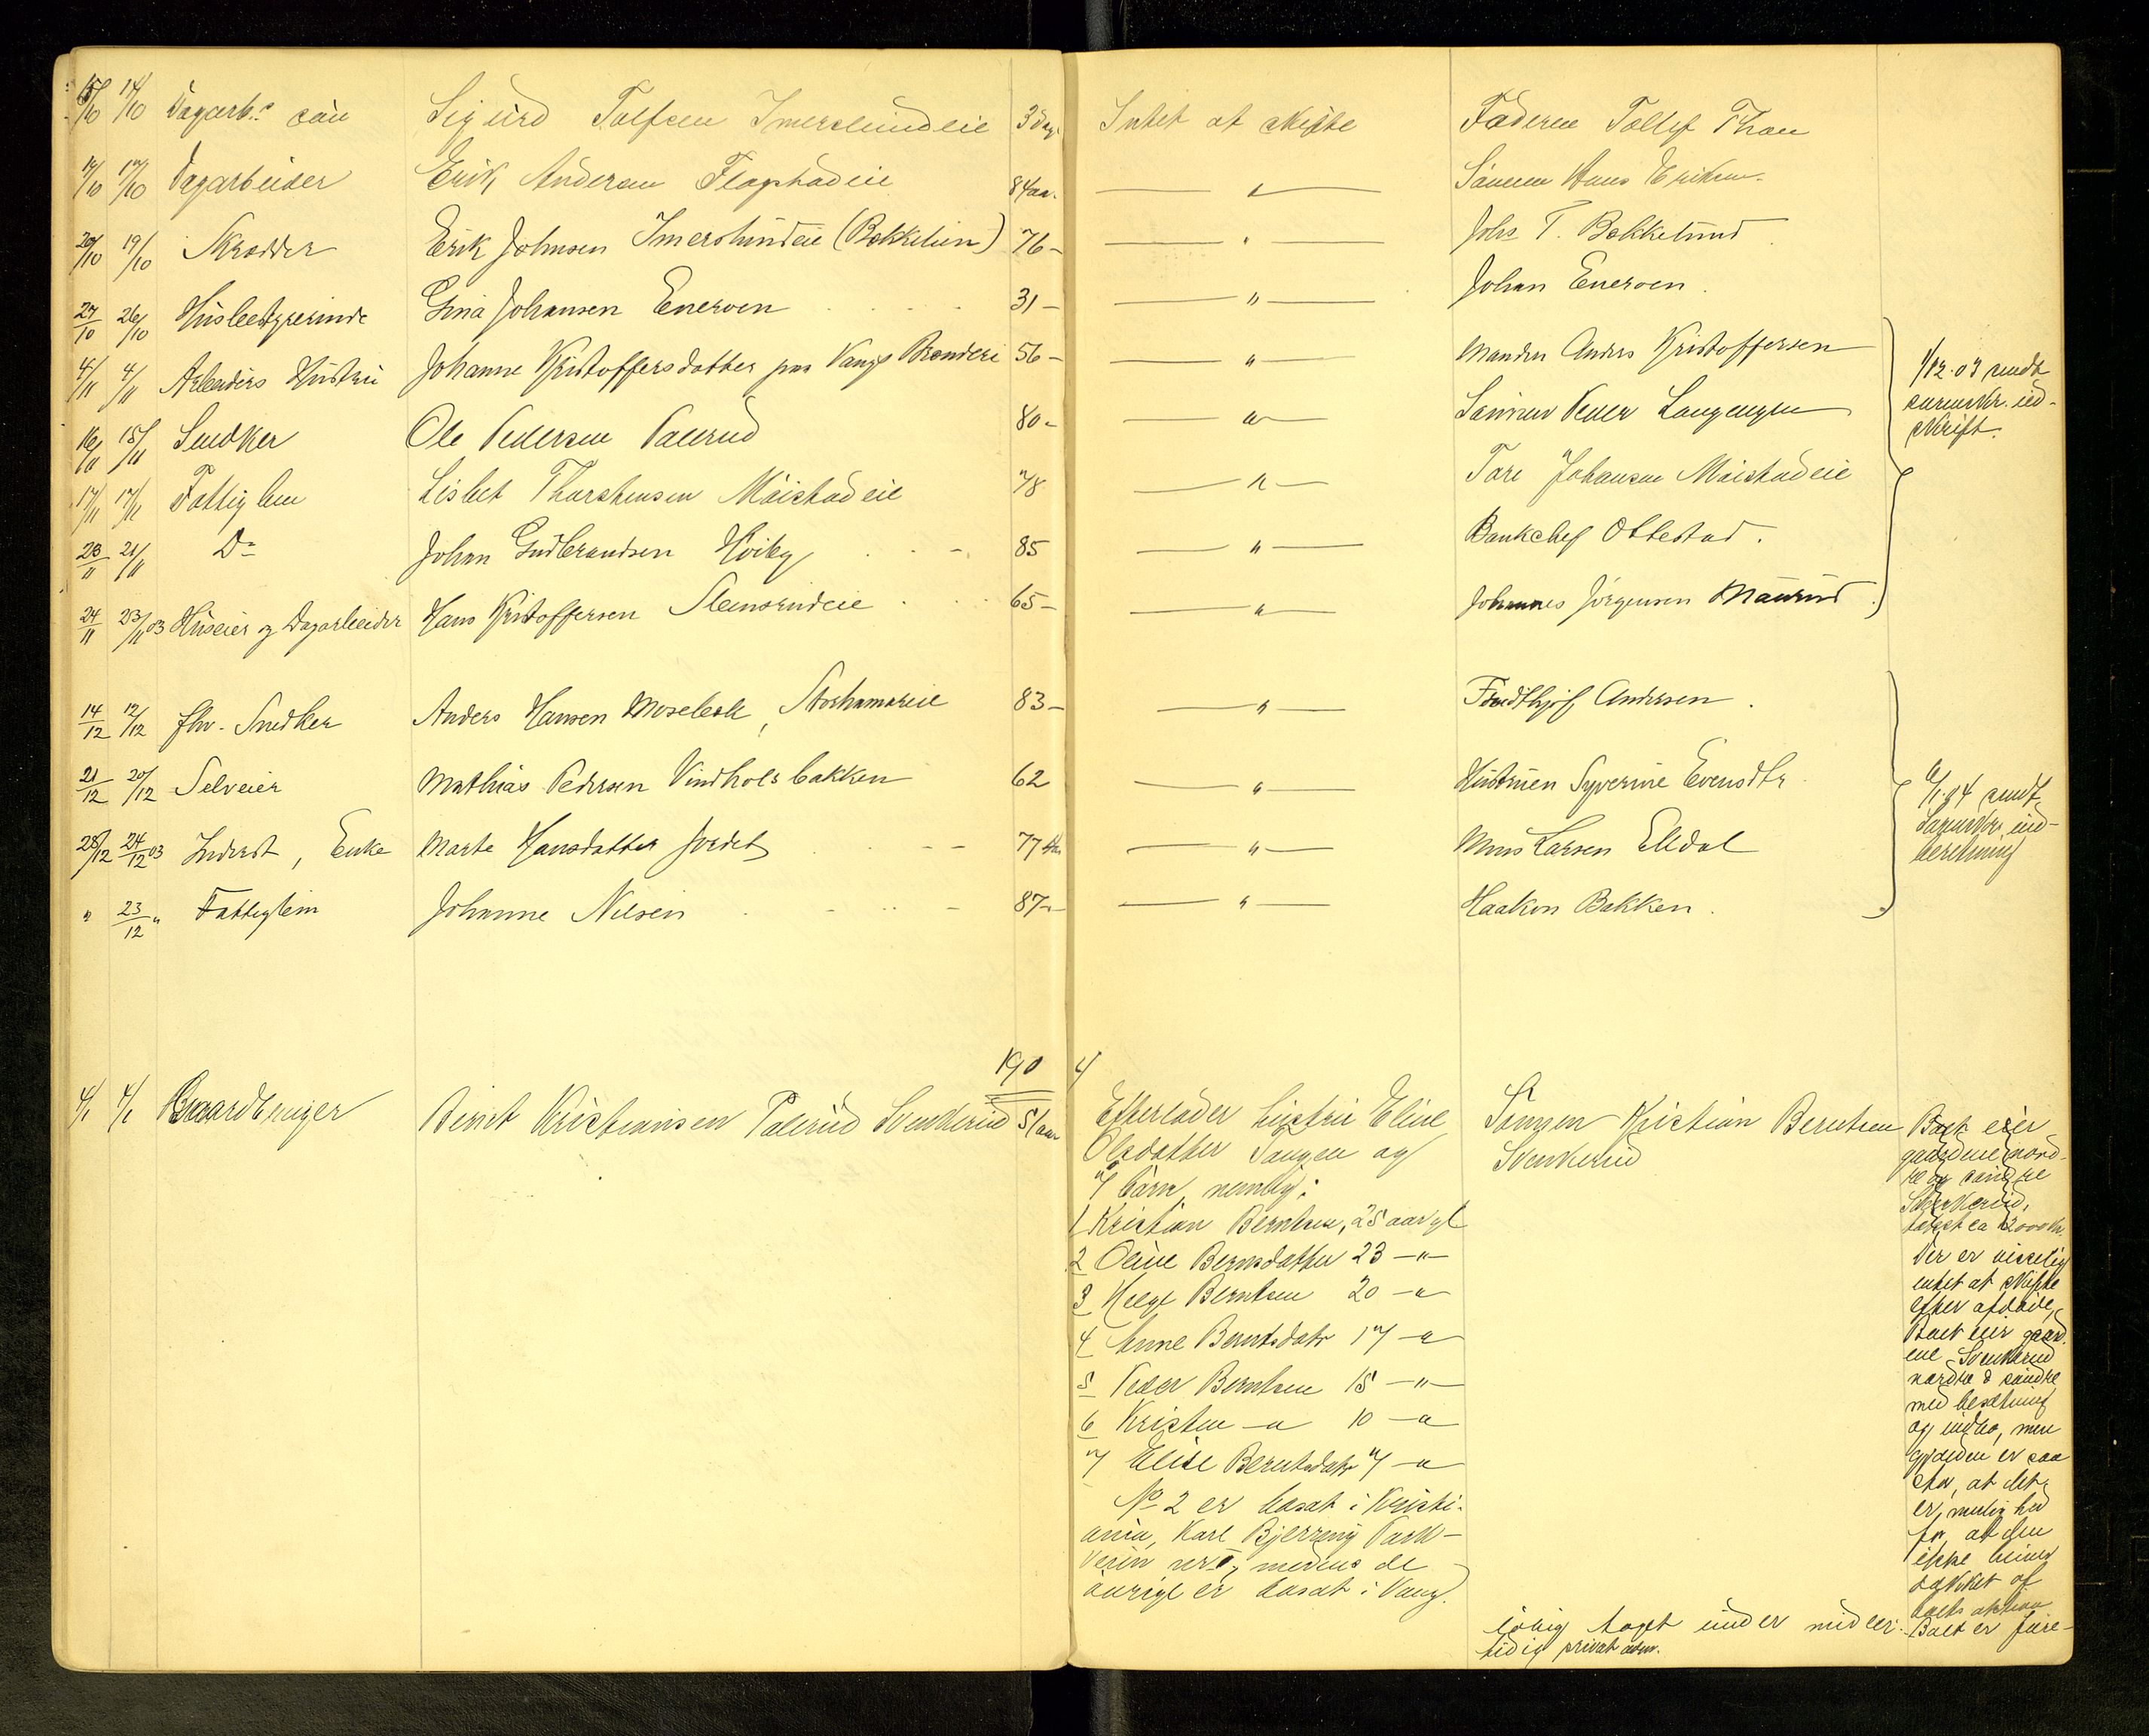 15/10 14/10 Dagarb.s sön Sigurd Tolfsen Imerslundeie 3 dag. Intet at skifte Faderen Tollef Thom
17/10 17/10 Dagarbeider Erik Andersen Flagstadeie 84 aar. — " — Sönnen Hans Eriksen
20/10 19/10 Skrædder Erik Johnsen Imerslundeie (Bekkelien) 76 — — " — Johs T. Bekkelund
27/10 26/10 Husbestyrerinde Gina Johansen Eneroen 31 — — " — Johan Eneroen.
4/11 4/11 Arbeiders Hustru Johanne Kristoffersdatter paa Vangs Brænderi 56 — — " — Manden Anders Kristoffersen
1/12.03 sendt
sorenskr. ind-
skrift.
16/11 15/11 Snedker Ole Pedersen Palerud 80 — — " — Sönnen Peder Langengen
17/11 17/11 Fattiglem Lisbet Thorstensen Möistadeie 78 — " — Tore Johansen Möistadeie
23/11 21/11 Do Johan Gudbrandsen Höiby 85 — " — Bankchef Ottestad.
24/11 23/11 03 Huseier og Dagarbeider Hans Kristoffersen Stensrudeie 65 — — " — Johannes Jörgensen Maurud.
14/12 12/12 fhv. Snedker Anders Hansen Mosebæk, Storhamareie 83 — — " — Fridthjof Andersen.
21/12 20/12 Selveier Mathias Pedersen Vindholsbakken 62 — " — Hustruen Syverine Evensdtr.
6/1.04 sendt
sorenskr. ind-
beretning
28/12 24/12 03 Inderst, Enke Marte Hansdatter Jordet 77 — " — Mons Larsen Elldal
" 23/12 " Fattiglem Johanne Nilsen 87 — — " — Haakon Bakken.
1904
4/1 4/1 Gaardbruger Bernt Kristiansen Palerud Svenkerud 51 aar
Efterlader hustru Eline
Olsdatter Tangen og
7 börn, nemlig:
1 Kristian Berntsen, 25 aar gl
2 Oline Berntsdatter 23 — " —
3 Helge Berntsen 20 — " —
4 Anne Berntsdatr 17 — " —
5 Peder Berntsen 15 — " —
6 Kristen — " 10 — " —
7 Elise Berntsdatr 7 — " —
No 2 er bosat i Kristi-
ania, Karl Bjerring Park-
veien medens de
övrige er bosat i Vang.
Sönnen Kristian Berntsen
Svenkerud
Boet eier
gaardene nord-
re og söndre
Svenkerud,
taxt ca 12000 kr.
Der er
intet at skifte
efter afdöde,
Boet eier gaard-
ene Svenkerud
nordre & söndre
med besætning
og indbo, men
gjælden er saa
stor, at det
er mulighed
for, at den
ikke bliver
dækket af
boets aktiva
Boet er före-
löbig taget under midler-
tidig privat adm.